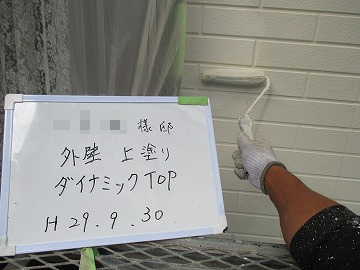 様邸
外壁 上塗り
ダイナミックTOP
H29.9.30